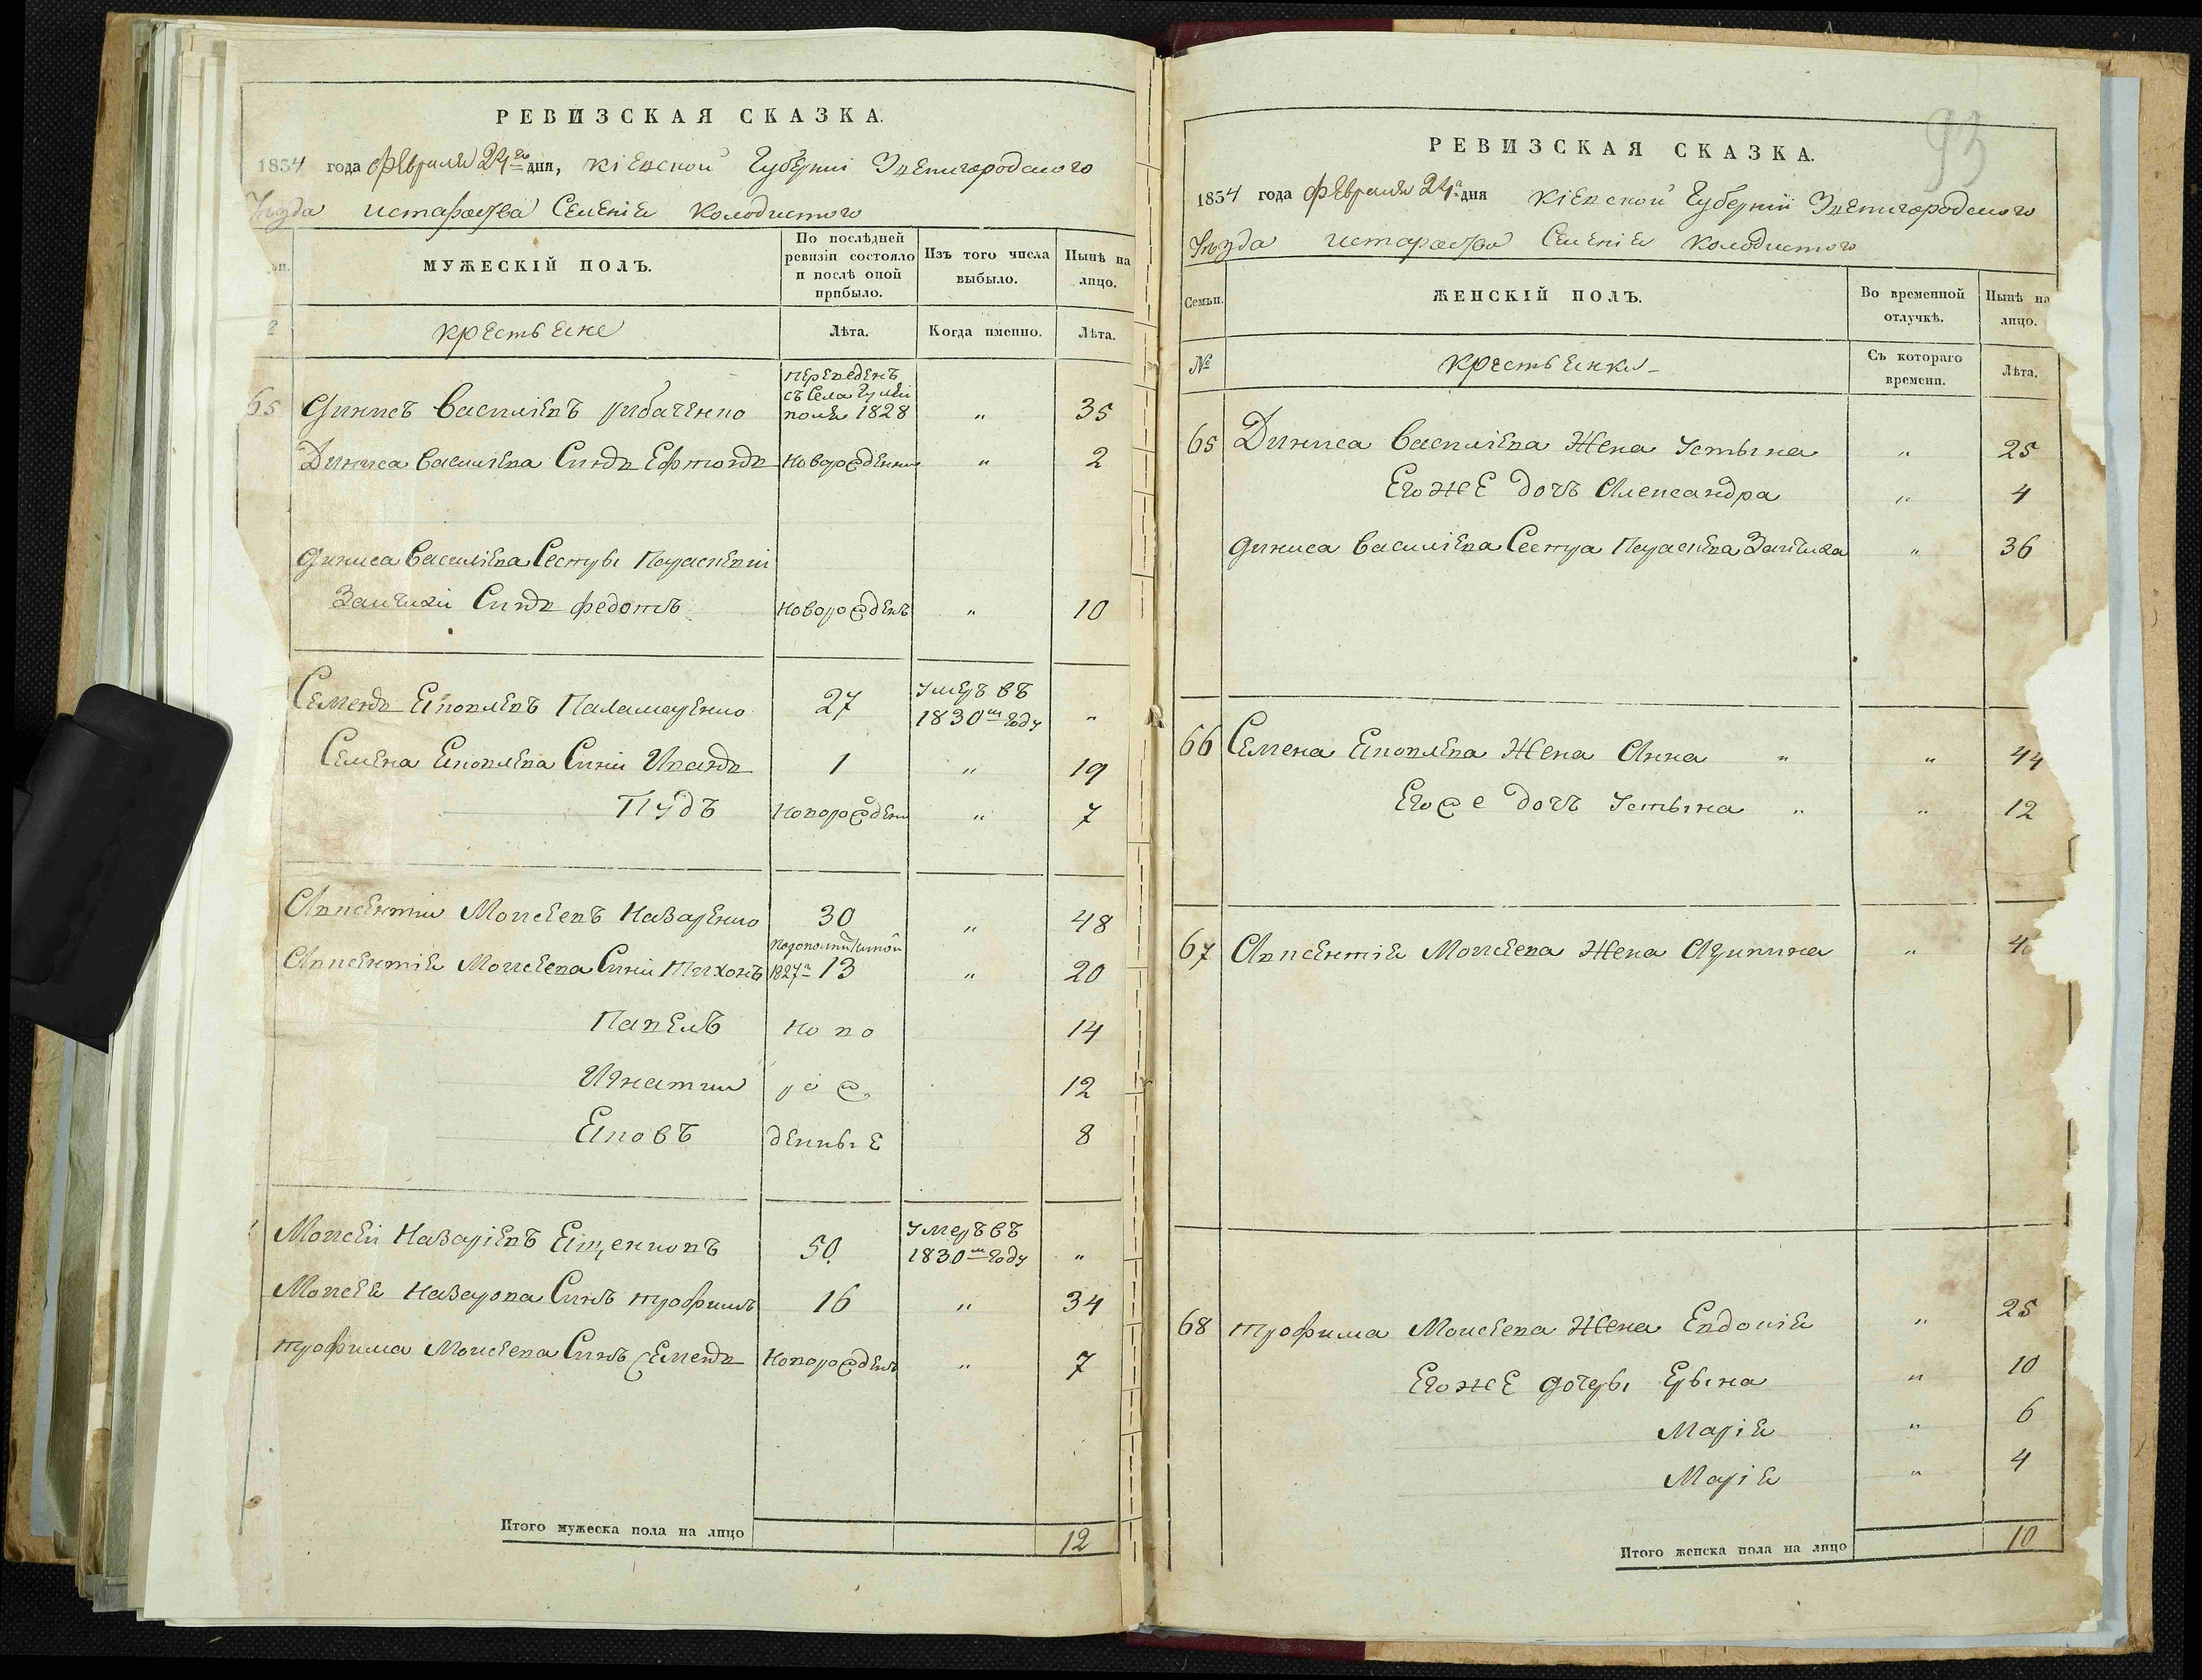 РЕВИЗСКАЯ СКАЗКА.
1834 года февраля 24го дня, Кіевской Губерніи Звенигородского
Уезда истароства Селенія Колодистого
МУЖЕСКІЙ ПОЛЪ.
По послѣдней ревизіи состояло и послѣ оной прибыло.
Изъ того числа выбыло.
Нынѣ на лицо.
крестьяне
Лѣта.
Когда именно.
Лѣта.
65 Динисъ Василіевъ рибаченко переведенъ съ Села 1828 „ 35
Диниса Василіева Синъ Ефтюхъ новорожденни „ 2
Диниса Василіева Сестры Параскевіи
Синъ федотъ новорожденъ „ 10
Семенъ Яковлевъ Паламаренко 27 умеръ въ 1830м Году „
Семена Яковлева Сини Иванъ 1 „ 19
Пудъ новорожден „ 7
Авксентии Моисеевъ Назаренко 30 „ 48
Авксентія Моисеева Сини Тихонъ 1827 13 „ 20
Павелъ но во 14
Игнатии ро ж 12
Яковъ денные 8
Моисей Назаріевъ Ященковъ 50 умеръ въ 1830м Году „
Моисея Назарова Синъ трофимъ 16 „ 34
трофима Моисеева Синъ Семенъ новорожденъ „ 7
Итого мужеска пола на лицо 12
93
РЕВИЗСКАЯ СКАЗКА.
1834 года февраля 24 дня Кіевской Губерніи Звенигородского
Уезда истароства Селенія Колодистого
Семьи.
ЖЕНСКІЙ ПОЛЪ.
Во временной отлучкѣ.
Нынѣ на лицо.
№
крестьянки
Съ котораго времени.
Лѣта.
65 Диниса Василіева Жена Устына „ 25
Егоже дочъ Александра „ 4
Диниса Василіева Сестра Параскева „ 36
66 Семена Яковлева Жена Анна „ „ 44
Егоже дочъ Устына „ „ 12
67 Авксентія Моисеева Жена „
68 трофима Моисеева Жена Евдокія „ 25
Егоже дочеры Ерына „ 10
Марія „ 6
Марія „ 4
Итого женска пола на лицо 10